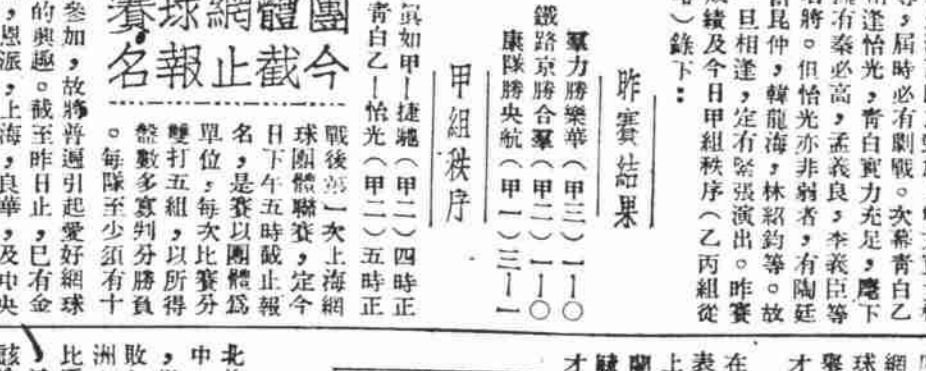 屆時必有劇戰。次幕青白乙
逢怡光,青白實力充足,麾下
有秦必高,孟義良,李義臣等
將。但怡光亦非弱者,有陶廷
昆仲,韓龍海,林紹鈞等。故
旦相逢,定有緊張演出。昨賽
成績及今日甲組秩序(乙丙組從
)錄下:
昨賽結果
羣力勝樂華(甲三)一—〇
鐵路京勝合羣(甲二)一—〇
康隊勝央航(甲一)三—一
甲組秩序
眞如甲—捷馳(甲二)四時正
青白乙—怡光(甲二)五時正
團體網球賽
今截止報名
戰後第一次上海網
球團體聯賽,定今
日下午五時截止報
名,是賽以團體爲
單位,每次比賽分
雙打五組,以所得
盤數多寡判分勝負
。每隊至少須有十
參加,故將普遍引起愛好網球
的興趣。截至昨日止,已有金
,恩派,上海,良華,及中央
網
球
才
在
表
上
才
北
中
,
敗
洲
比
該